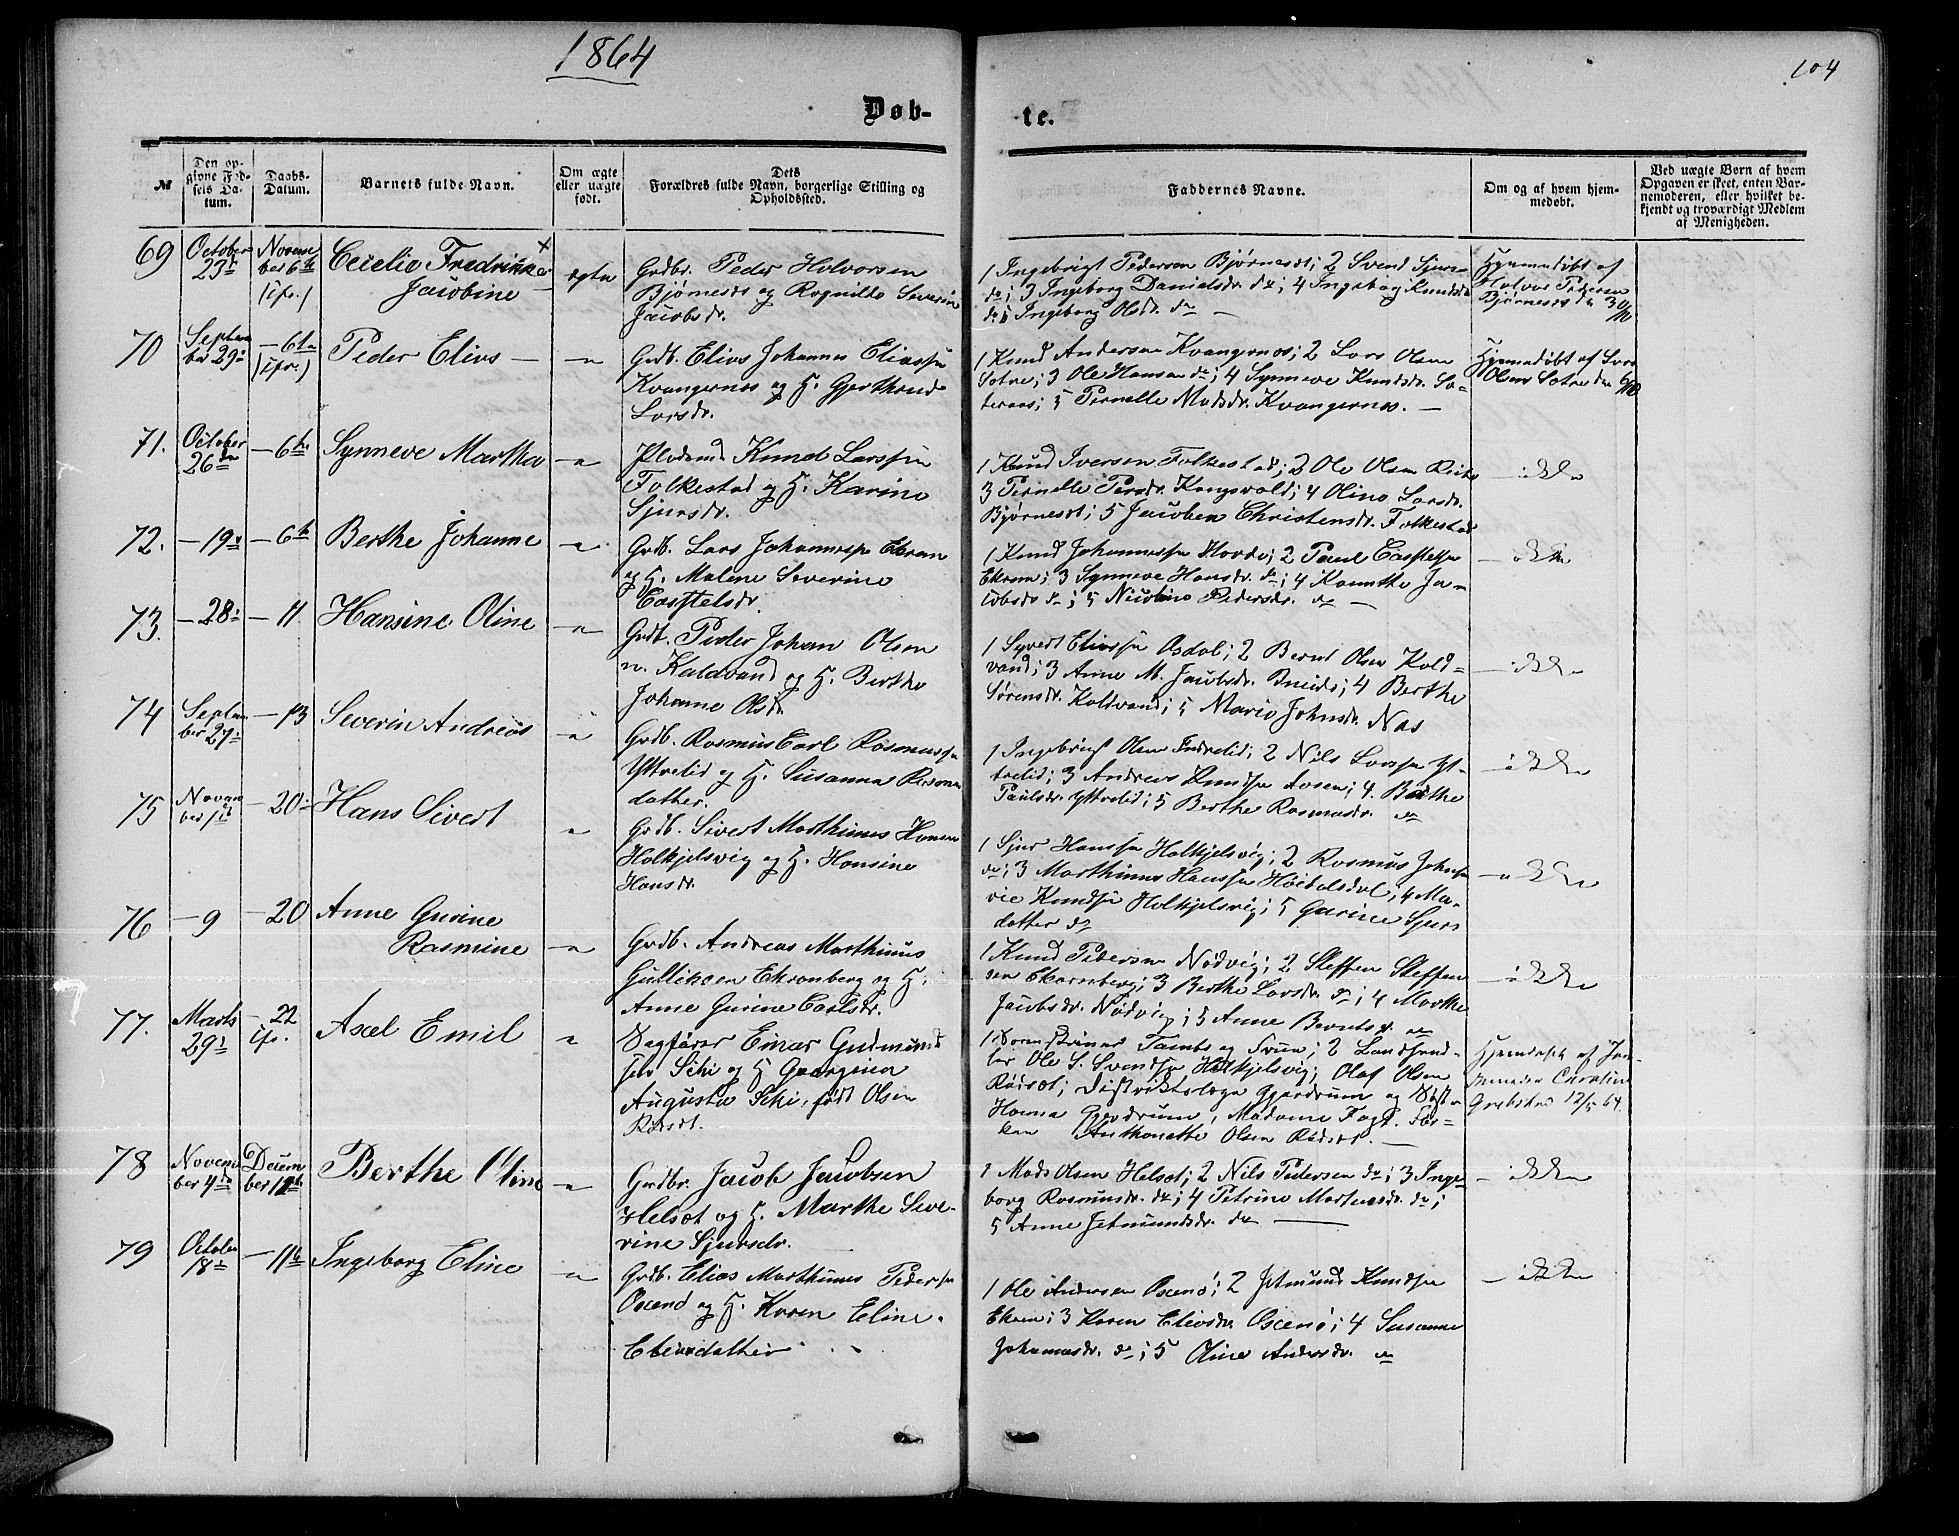 1864
104
Døb-
te.
№
Den op-
givne Fød-
sels Da-
tum.
Daabs-
Datum.
Barnets fulde Navn.
Om ægte
eller uægte
født.
Dets
Forældres fulde Navn, borgerlige Stilling og
Opholdssted.
Faddernes Navne.
Om og af hvem hjem-
medøbt.
Ved uægte Børn af hvem
Opgaven er skeet, enten Bar-
nemoderen, eller hvilket be-
kjendt og troværdigt Medlem
af Menigheden.
69
October
23
Novem
ber 6
Cecelia Fredrikke
Jacobine
ægte
Grdbr. Peder Halvorsen
Bjørneset og Ragnilde Severine
Jacobsdr.
1 Ingebrigt Pedersen Bjørneset; 2 Svend
do; 3 Ingeborg Danielsdr. do; 4 Ingeborg Knudsdr
do 5 Ingeborg Olsdr. do
Hjemmedøbt af
Halvor Pedersen
Bjørneset den 30/10
70
Septem
ber 29
6te
Peder Elias
Grdb. Elias Johannes Eliassen
Kvangernes og H. Gjerthrude
Larsdr.
1 Knud Andersen Kvangernes; 2 Lars Olsen
Sætre; 3 Ole Hansen do; 4 Synneve Knudsdr.
5 Pernelle Madsdr. Kvangernes.
Hjemmedøbt af Lars
Olsen Sætre den
71.
October
26
6te
Synneve Marthe
Knud Larsen
Folkestad og H. Karine
Sjursdr.
1 Knud Iversen Folkestad; 2 Ole Olsen
3 Pernelle Persdr. Kongsvold; 4 Oline Larsdr.
Bjørneset; 5 Jacobea Christensdr. Folkestad
ikke
72.
19
6te
Berthe Johanne
Grdb. Lars Johannesen Ekrem
og H. Malene Severine
1 Knud Johannessen Hovde; 2 Paul
Ekrem; 3 Synneve Hansdr. do; 4 Ja-
cobsdr do; 5 Nicoline Pedersdr. do
ikke
73.
28
11
Hansine Oline
Grdb. Peder Johan Olsen
n. Kaldvand og H. Berthe
Johanne Olsdr.
1 Syvert Eliassen Osdal; 2 Bernt Olsen Kald-
vand; 3 Anne M. Jacobsdr. 4 Berthe
Sørensdr. Kaldvand; 5 Marie Johnsdr. Nes
ikke
74
Septem
ber 27
13
Severin Andreas
Grdb. Rasmus Carl Rasmussen
Yttrelid og H. Susanna
datter.
1 Ingebrigt Olsen Indrelid; 2 Nils Larsen Yt-
trelid; 3 Andreas Knudsen Aasen; 4. Berthe
Paulsdr. Yttrelid; 5 Berthe Rasmusdr. do
ikke
75
Novem
ber 1
20
Hans Sivert
Grdb. Sivert Marthinus Hansen
Holkjelsvig og H. Hansine
Hansdr.
1 Sjur Hansen Holkjelsvig; 2 Rasmus Johnsen
do; 3 Marthinus Hansen Høidalsdal; 4 Ma-
rie Knudsen Holkjelsvig; 5 Gurine Sjurs
datter do
ikke
76
9
20
Anne Gurine
Rasmine
Grdb. Andreas Marthinus
Gulliksen Ekremberg og H.
Anne Gurine Carlsdr.
1 Knud Pedersen Nødvig; 2 Steffen Steffen
sen Ekremberg; 3 Berthe Larsdr. do; 4 Marthe
Jacobsdr. Nødvig; 5 Anne Berntsdr. do
ikke
77.
Marts
29
22
Axel Emil
Sagfører Einar Gudmund
og H Georgina
Augusta født Olsen
Rødset.
Tambs og 2 Landhand-
ler Ole S. Svendsen Holkjelsvig; Olaf Olsen
Rødset; Distriktslæge Gjerdrum og
Hanna Gjerdrum, Madame Frø-
ken Anthonette Olsen Rødset.
Hjemdøbt af Jor-
demoder Caroline
12/5 64.
78
Novem
ber 4de
Decem
ber 11
Berthe Oline
Grdbr. Jacob Jacobsen
Helset og H. Marthe Seve-
rine Sjursdr.
1 Mads Olsen Helset; 2 Nils Pedersen do; 3 Inge-
borg Rasmusdr. do; 4 Petrine Martinusdr. do;
5 Anne Jetmundsdr. do
ikke
79
October
18
11
Ingeborg Eline
Grdb. Elias Marthinus Pedersen
Oxend og H. Karen Eline
1 Ole Andersen Oxend; 2 Jetmund Knudsen
Ekrem; 3 Karen Eliasdr. Oxend; 4 Susanne
Johannesdr. do; 5 Oline Andersdr. do
ikke